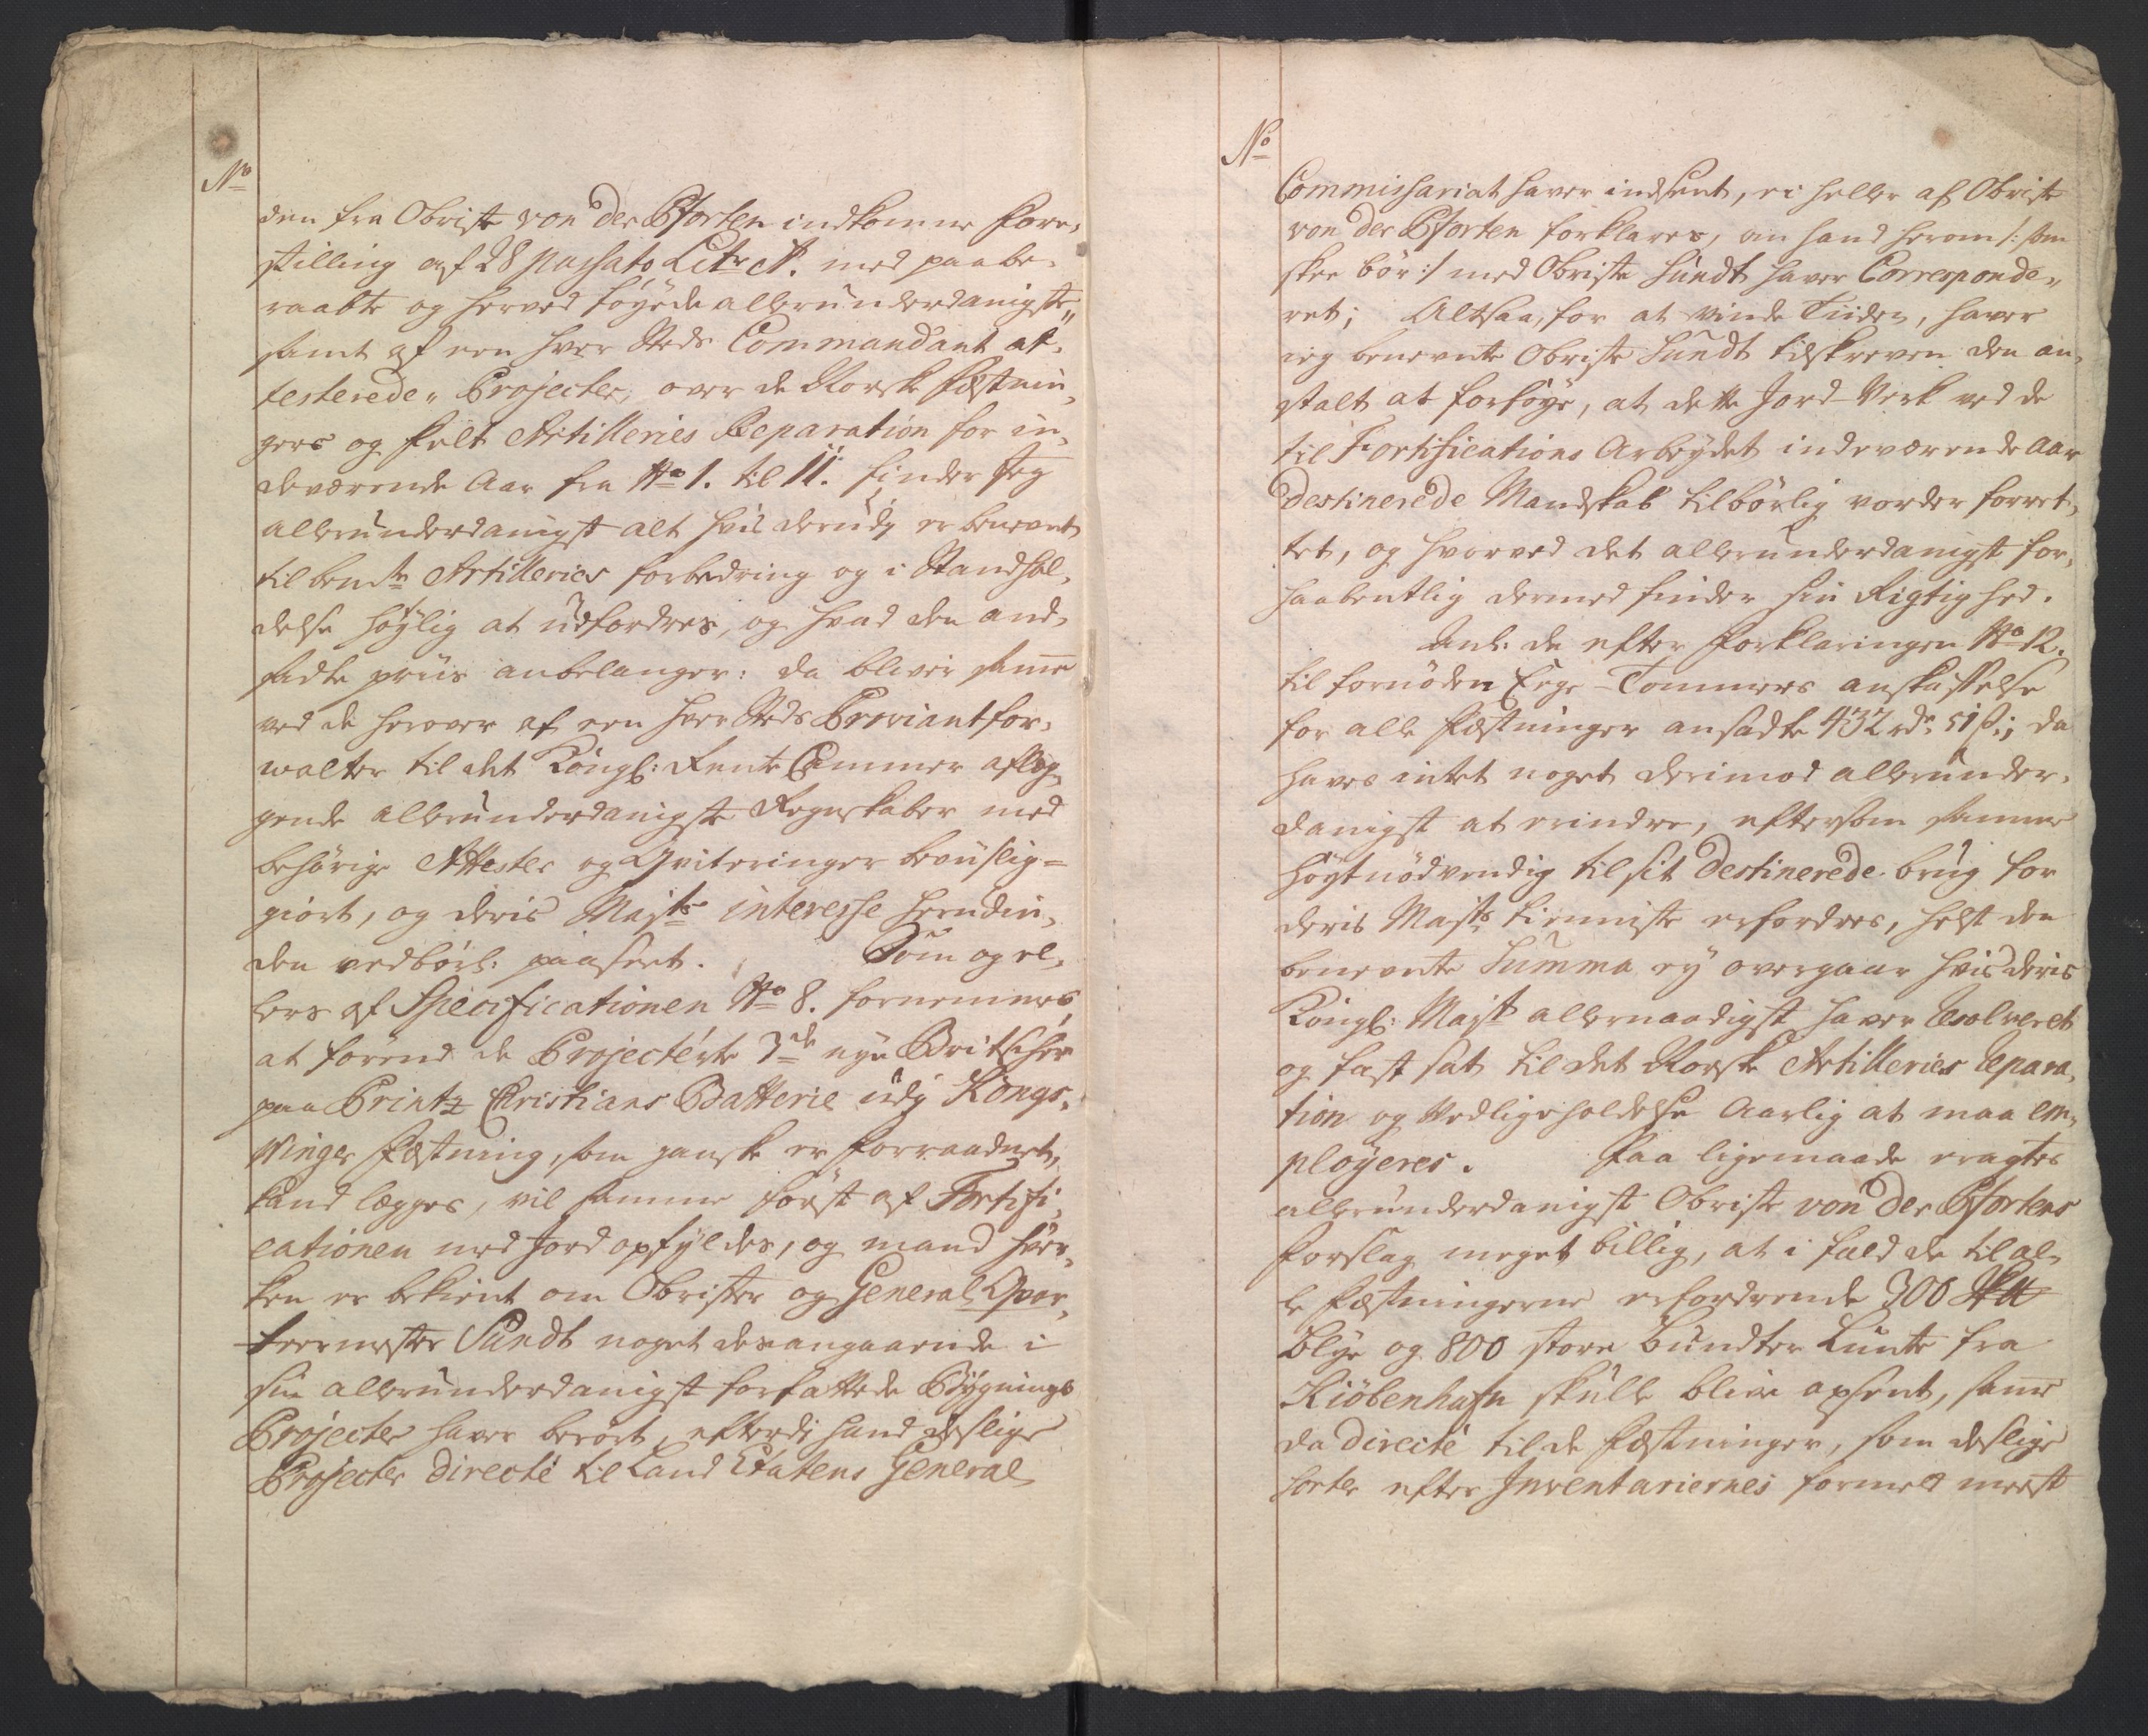 No
den fra Obriste von der Pforten indkomne Fore,
stilling af 28 passato Litr A. med paabe,
raabte og herved föyede allerunderdanigste„
samt af een hver Steds Commandant at,
testerede„ Projecter, over de Norske Fæstnin,
gers og Felt Artilleries Reparation for in,
deværende Aar fra No 1. til 11. finder Jeg
allerunderdanigst alt hvis derudj er benevnt
til bemte Artilleries forbedring og i Standhol,
delse höylig at udfordres, og hvad den and,
satte priis anbelanger: da bliver same
ved de herover af een hver Steds Proviantfor,
walter til det Kongl: Rente Cammer aflæg,
gende allerunderdanigste Regnskaber med
behörige Attester og Qviteringer beviislig=
giort, og deris Majts interesse herudin,
den vedbörl: paaseet. Som og el,
lers af Specificationen No 8. fornemmes,
at förend de Projecterte 3de nye Britscher
paa Printz Christians Batterie udj Kongs,
Vinger Fæstning, som ganske er forraadnet,
kand lægges, vil samme först af Fortifi,
cationen med Jord opfyldes, og mand hver,
ken er bekient om Obrister og General Qvar,
teermester Sundt noget desangaaende i
sin allerunderdanigst forfattede Bygnings
Projecter haver berört, efterdj hand deslige
Projecter directe til Land Etatens General
No
Commissariat haver indsent, ei heller af Obriste
von der Pforten forklares, om hand herom /: som
skee bör :/ med Obriste Sundt haver Corresponde,
ret; Altsaa, for at vinde Tiiden, haver
ieg benevnte Obriste Sundt tilskreven den an,
stalt at forföye, at dette Jord-Verk ved de
til Fortifications Arbeydet indeværende Aar
destinerede Mandskab tilbörlig vorder forret,
tet, og hvorved det allerunderdanigst for,
haabentlig dermed finder sin Rigtighed.
Anl: de efter Forklaringen No 12.
til fornöden Eege-Tommers anskaffelse
for alle Fæstninger ansadte 432 rdr 51 ß; da
haves intet noget derimod allerunder,
danigst at erindre, eftersom samme
höytnödvendig til sit destinerede brug for
deris Majts tienniste erfordres, helst den
benevnte Summa ey overgaar hvis deris
Kongl: Majt allernaadigst haver Resolveret
og fast sat til det Norske Artilleries Repara,
tion og Vedligeholdelse Aarlig at maa em,
ployeres. Paa ligemaade eragtes
allerunderdanigst Obriste von der Pfortens
Forslag meget billig, at i fald de til al,
le Fæstningerne erfordrende 300
Blye og 800 store bundter Lunte fra
Kiöbenhafn skulle blive opsent, same
da directe til de Fæstninger, som deslige
sorter efter Inventariernes formeld meest